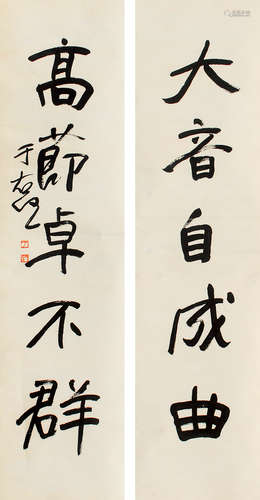 大音自成曲
高節卓不群
于右任